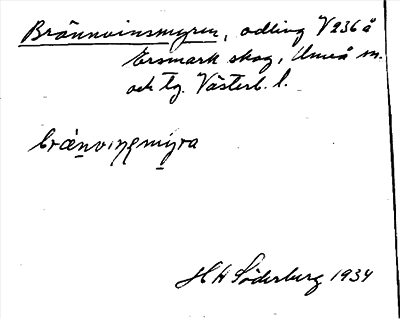 Brännvinsmyren, odling V 236 å
Ersmark skog, Umeå m.
och tg. Västerb. l.
bränviŋsmyra
H H Söderburg 1934